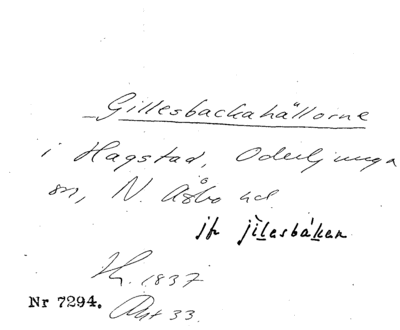 Gillesbackahällorne
i Hagstad, Oderljunga
sn, N. Åsbo hd.
jfr jìlesbáken
1837
Nr 7294. Akt 33.